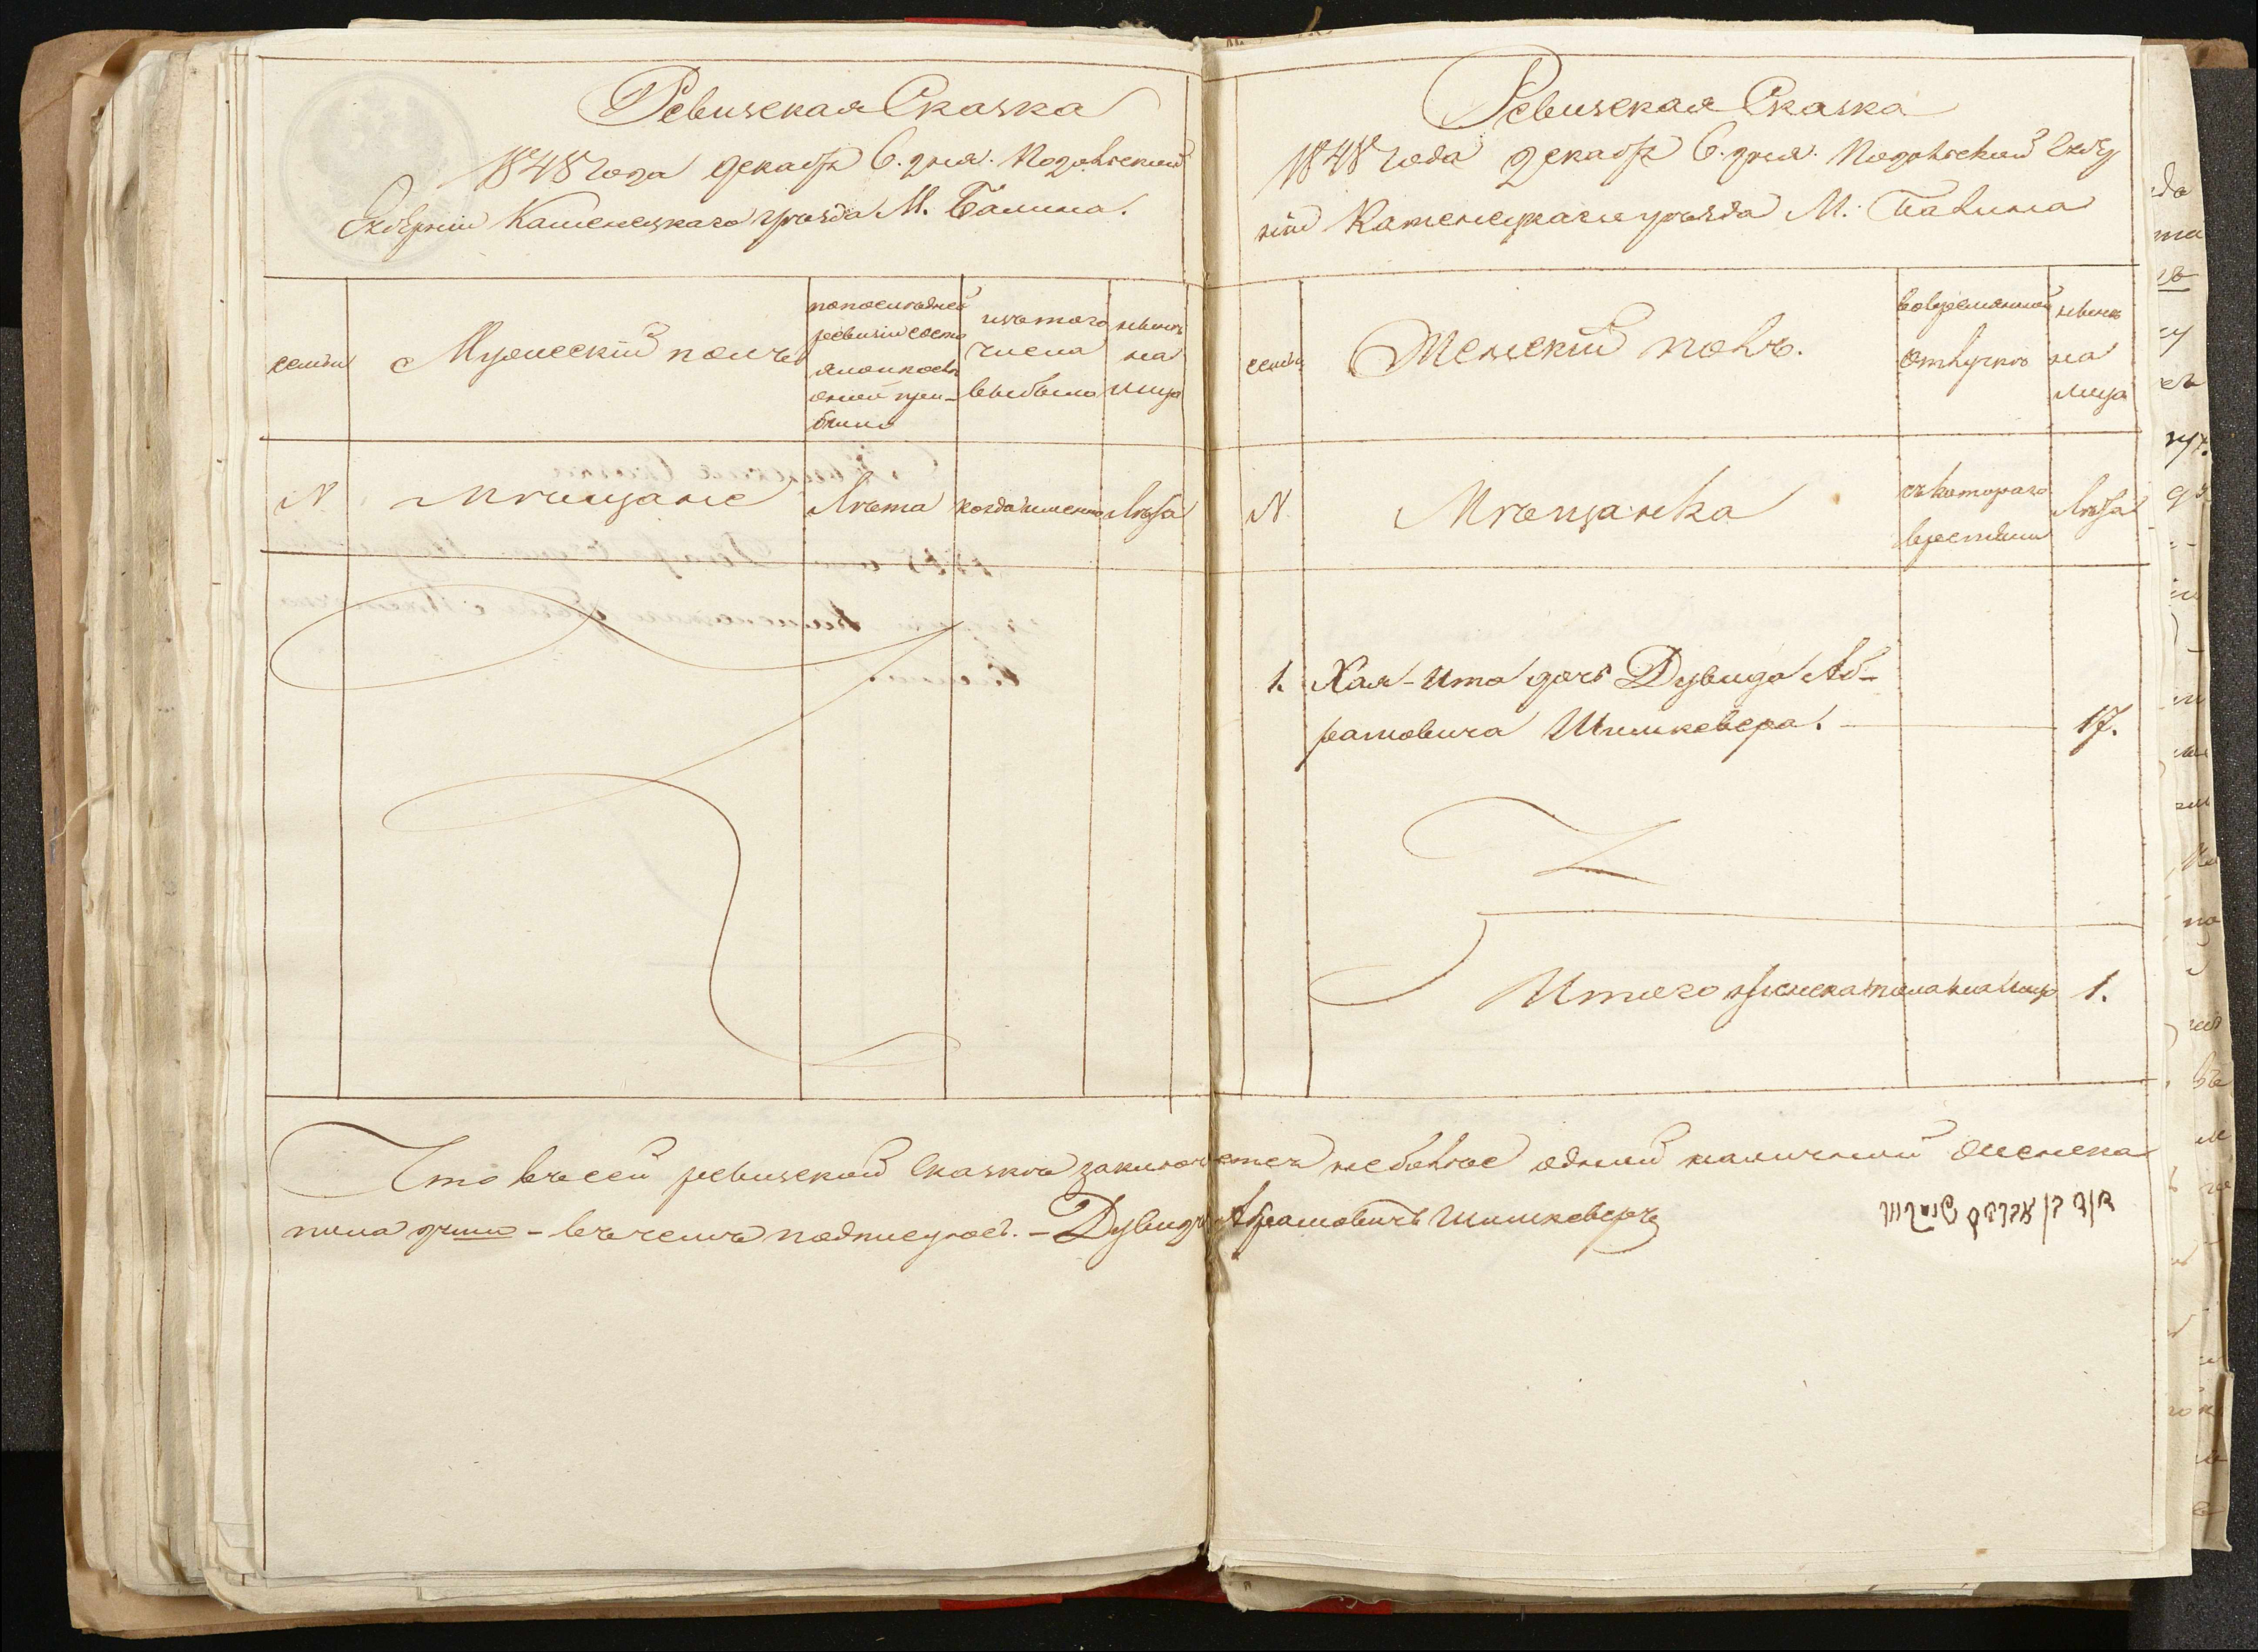 Ревизская Сказка
1848 года декабр 6. дня. Подольской
Губерніи Каменецкаго уѣзда М. Балина.
семьи
Мужескій полъ
по последней
ревизіи состо
яло и после
оной при-
было
изъ того
числа
выбыло
нынѣ
на
лицо
№
Мѣщане
Лѣта
когда именно
Лѣта
Ревизская Сказка
1848 года декабр 6. дня. Подольской Губер
ніи Каменецкаго уѣзда М. Балина
семьи
Женскій полъ.
во временной
отлучкѣ
нынѣ
на
лицо
№
Мѣщанка
съ котораго
времени
Лѣта
1. Хая-Ита дочь Дувида Аб-
рамовича Шпилкебера. 17.
Итого женска пола на лицо 1.
Что въ сей ревизской Сказкѣ заключается не больше одной наличной женска
пола души - въ чемъ подписуюсь. - Дувидъ Абрамовичъ Шпилкеберъ
דוד בן אברהם